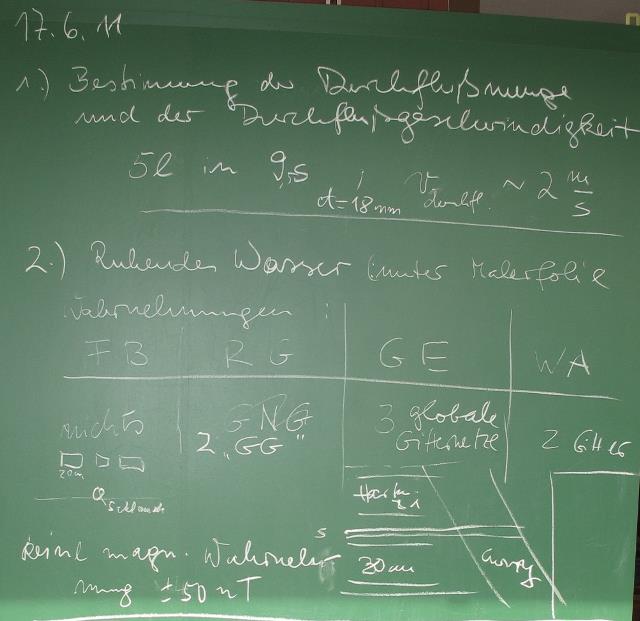 17.6.11
1.) Bestimmung der Durchflußmenge
und der Durchflußgeschwindigkeit
5l in 9,5
d=18mm V ~ 2 m/s
2.) Ruhendes Wasser (unter Malerfolie
Wahrnehmungen :
FB RG GE WA
nichts GNG 3 globale
2 „GG" Gitternetze 2 Gitter
20cm
Q Schlauch
Hartm.
S
keine magn. Wahrneh-
20cm Curry
mung ±50nT